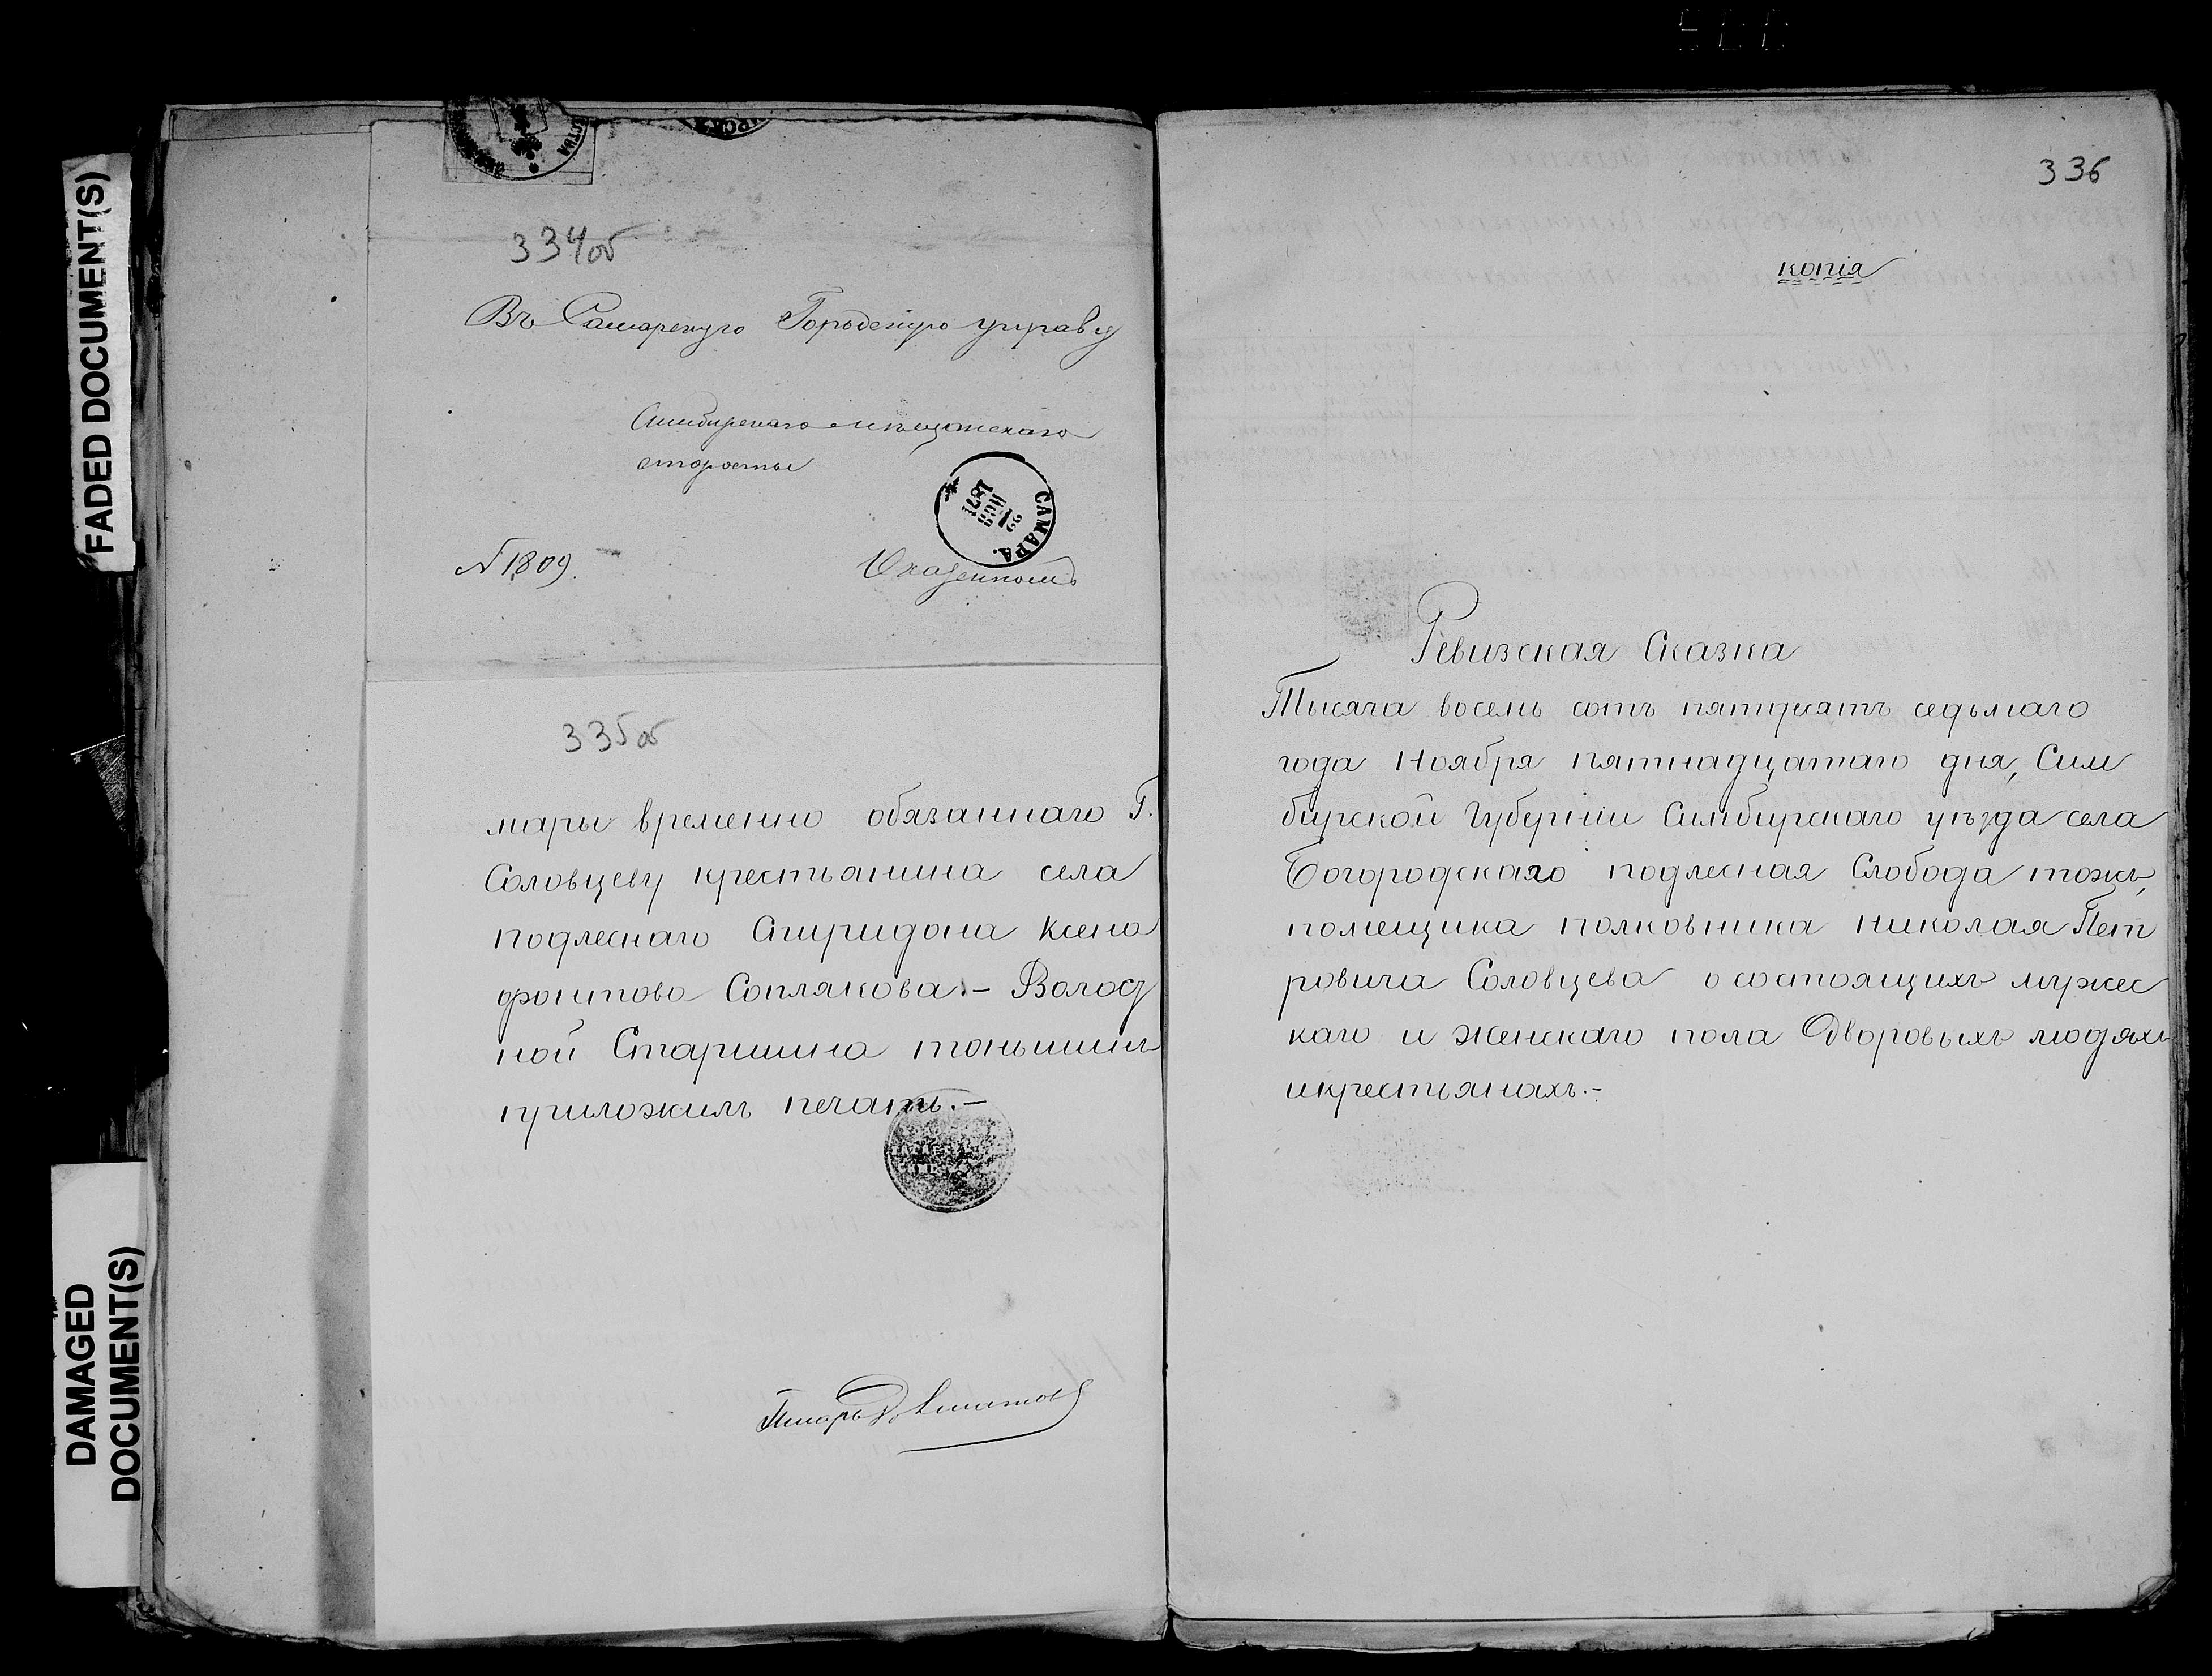 FADED DOCUMENT(S)
DAMAGED
DOCUMENT(S)
334об
Въ Самарскую Городскую управу
Симбирскаго мѣщанскаго
старосты
САМАРА.
22
НОЯ
1871
№ 1809.
335об
мары временно обязаннаго Г.
Соловцеву крестьянина села
подлеснаго Спиридона Ксено
фонтова Соплякова.- Волост
ной Старшина Тоньшинъ
приложилъ печать.-
Писарь
336
копія
Ревизская Сказка
Тысяча восемь сотъ пятдесятъ седьмаго
года Ноября пятнадцатаго дня, Сим
бирской Губерніи Симбирскаго уѣзда села
Богородскаго подлесная Слобода тожъ,
помещика полковника Николая Пет
ровича Соловцева о состоящихъ мужес
каго и женскаго пола Дворовыхъ людяхъ
и крестьянахъ.-